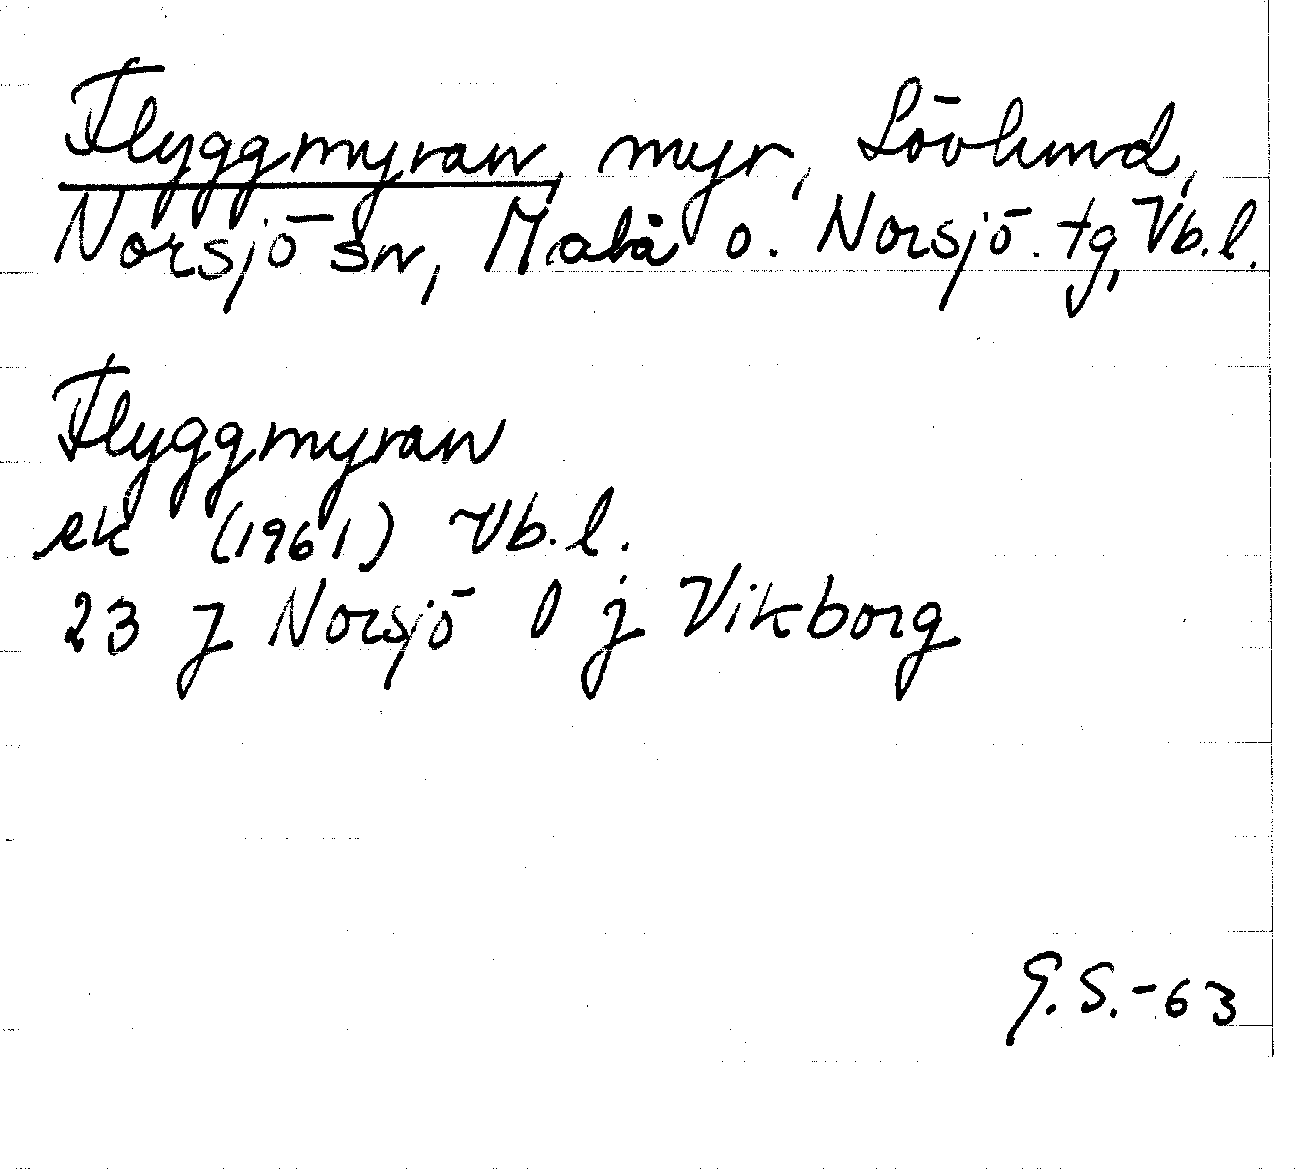 Flyggmyran, myr, Lövlund,
Norsjö sn, Malå o. Norsjö. tg, Vb. l.
Flyggmyran
ek (1961) Vb. l.
23 J Norsjö 0 j Vikborg
G. S. - 63